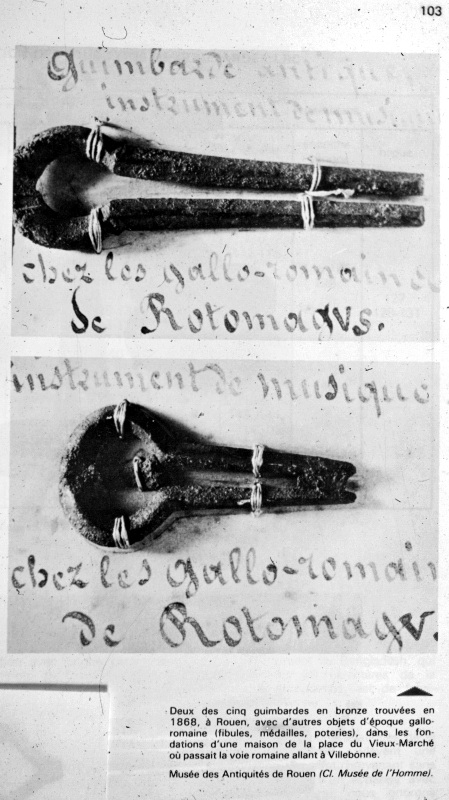 103
Guimbarde antique
instrument de musique
chez les gallo-romain de
de Rotomagvs.
instrument de musique
chez les gallo-romain
de Rotomagv.
Deux des cinq guimbardes en bronze trouvées en
1868, à Rouen, avec d'autres objets d'époque gallo-
romaine (fibules, médailles, poteries), dans les fon-
dations d'une maison de la place du Vieux-Marché
où passait la voie romaine allant à Villebonne.
Musée des Antiquités de Rouen (Cl. Musée de l'Homme).